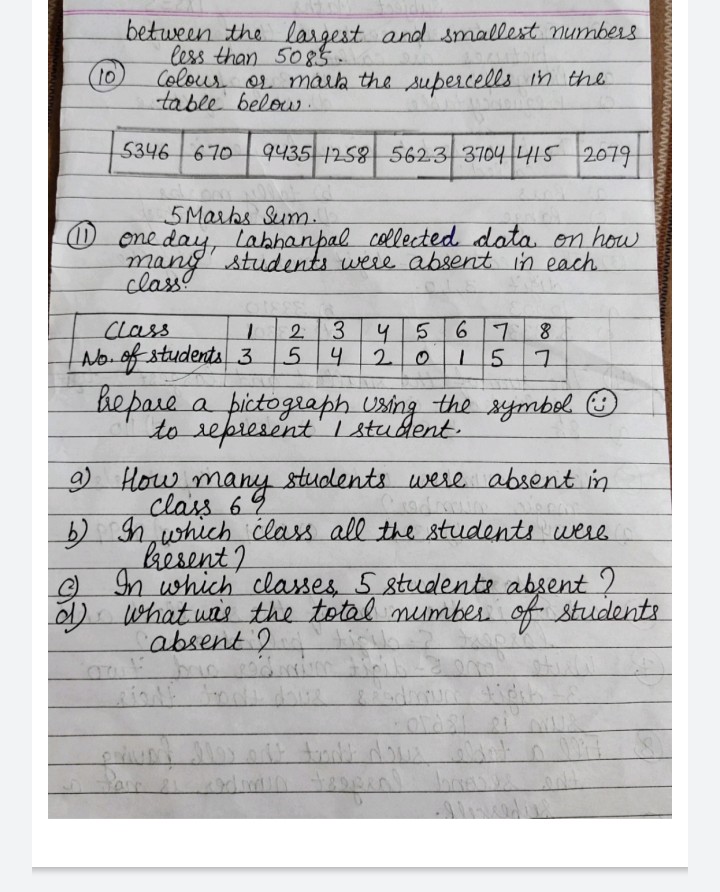 between the largest and smallest numbers
less than 5085.
(10) Colour or mark the supercells in the
table below.
5346 670 9435 1258 5623 3704 415 2079
5 Marks Sum.
(11) one day, Lakhanpal collected data on how
many students were absent in each
class.
Class 1 2 3 4 5 6 7 8
No. of students 3 5 4 2 0 1 5 7
Prepare a pictograph using the symbol ☺
to represent 1 student.
a) How many students were absent in
class 6?
b) In which class all the students were
Present?
c) In which classes, 5 students absent?
d) what was the total number of students
absent?